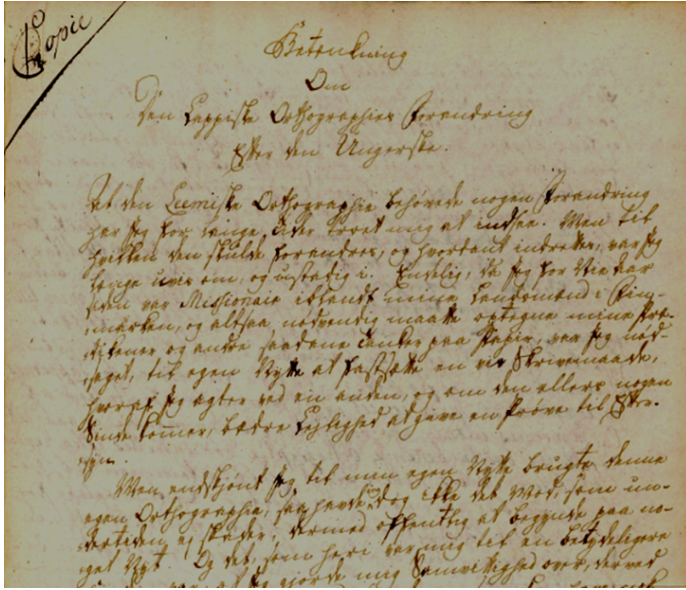 Copie
Betenkning
Om
Den Lappiske Orthographies Forandring
Efter den Ungerske.
At den Leemiske Orthographie behøvede nogen Forandring
har jeg for lange Tider troet mig at indsee. Men til
hvilken den skulde forandres, og hvordant indrettes, var jeg
lenge uvis om, og ustadig i. Endelig, da jeg for Aar
siden var Missionair iblandt mine Landsmænd i Fin-
marken, og altsaa nødvendig maatte optegne mine Pre-
dikener og andre saadane Tanker paa Papir, var jeg nød-
saget, til egen Nytte at fastsætte en vis Skrivemaade,
hvoraf jeg agter ved en anden, og om den ellers nogen
Sinde kommer, bædre Lejlighed at give en Prøve til Efter-
syn.
Men endskjønt jeg til min egen Nytte brugte denne
egen Orthographie, saa havde jeg dog ikke det Mod, som un-
dertiden ej skader, dermed offentlig at begynde paa no-
get Nyt. Og det, som heri var mig til en betydeligere
at jeg gjorde mig Samvittighed over, derved